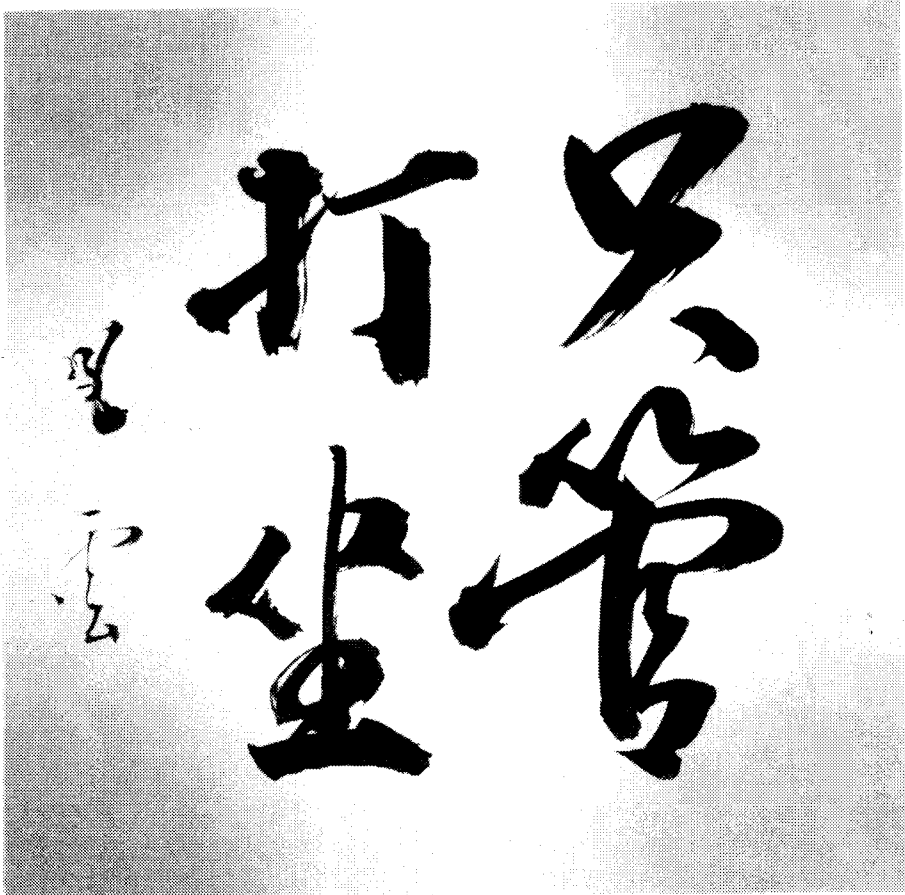 只管
打坐